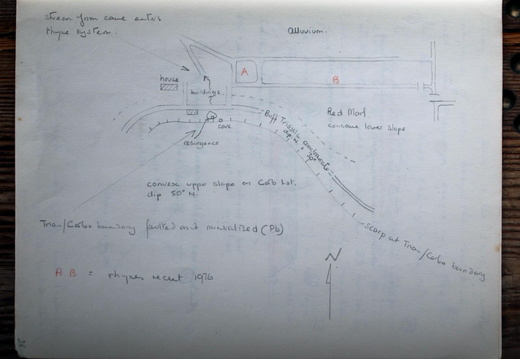 stream from cave enters
rhyne system.
alluvium.
A
B
house
buildings
Red Marl
concave lower slope
Buff Triassic conglomerate
cave
resurgence
convex upper slope on Carb Lst.
dip 50° N.
Trias/Carbo boundary faulted and mineralized (Pb)
Scarp at Trias/Carbo boundary
N
A B = rhynes recent 1976